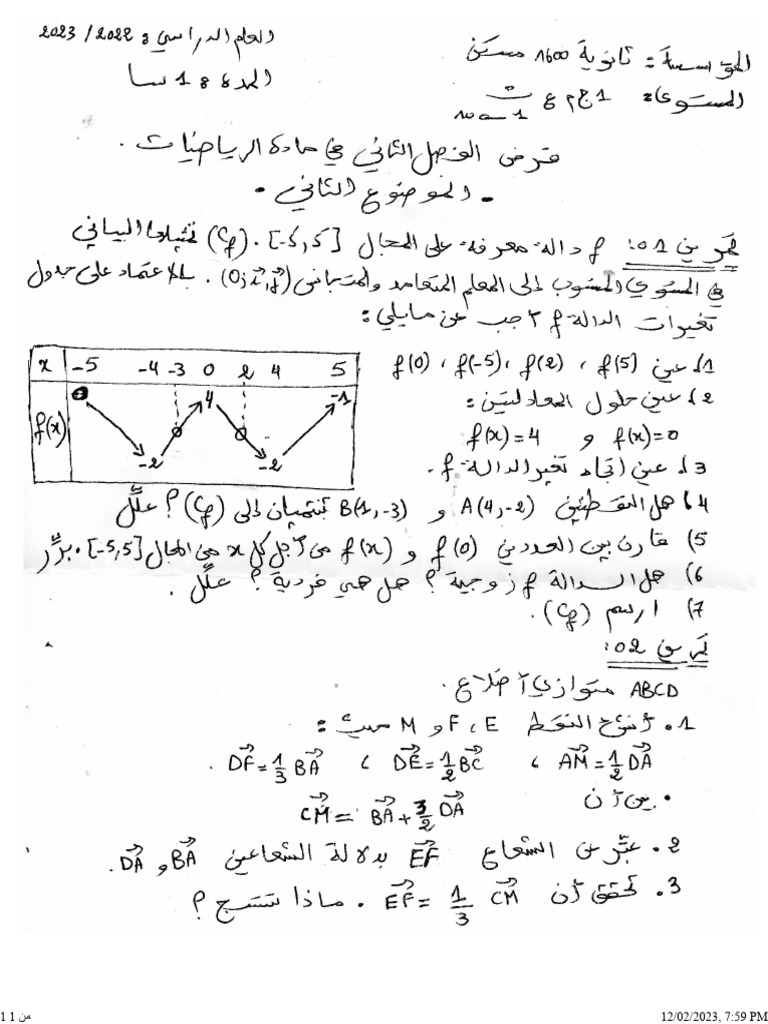 العام الدراسي: 2022 / 2023
المؤسسة: ثانوية 1600 مسكن
المدة: 1 سا
المستوى: 1 ج م ع ت
فرض الفصل الثاني في مادة الرياضيات.
- الموضوع الثاني -
تمرين 01: f دالة معرفة على المجال [-5,5]. (Cf) تمثيلها البياني
في المستوي المنسوب إلى المعلم المتعامد والمتجانس (O;i,j). بالاعتماد على جدول
تغيرات الدالة f أجب عن مايلي:
1. عين f(5) ، f(2) ، f(-5) ، f(0)
2. عين حلول المعادلتين:
f(x)=0 و f(x)=4
3. عين اتجاه تغير الدالة f.
x -5 -4 -3 0 2 4 5
f(x) -2 0 4 0 -2 -1
4. هل النقطتين A(4,-2) و B(1,-3) تنتميان إلى (Cf)؟ علّل
5) قارن بين العددين f(0) و f(x) من أجل كل x من المجال [-5,5]. برّر
6) هل الدالة f زوجية؟ هل هي فردية؟ علّل.
7) ارسم (Cf).
تمرين 02:
ABCD متوازي أضلاع.
1. أنشئ النقط E ، F و M حيث:
AM=1/2 DA ، DE=1/2 BC ، DF=1/3 BA .
. بين أن CM = BA + 3/2 DA
2. عبّر عن الشعاع EF بدلالة الشعاعين BA و DA.
3. تحقق أن EF = 1/3 CM . ماذا تستنتج؟
1 من 1
12/02/2023, 7:59 PM